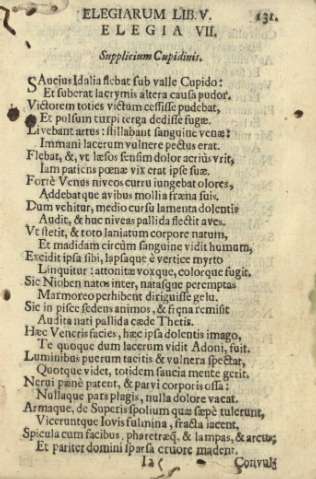 ELEGIARUM LIB. V. 131.
ELEGIA VII.
Supplicium Cupidinis.
SAucius Idalia flebat sub valle Cupido:
Et suberat lacrymis altera causa pudor.
Victorem toties victum cessisse pudebat,
Et pulsum turpi terga dedisse fugæ.
Livebant artus: stillabant sanguine venæ:
Immani lacerum vulnere pectus erat.
Flebat, &, ut læsos sensim dolor acriùs urit,
Iam patiens pœnæ vix erat ipse suæ.
Fortè Venus niveos curru iungebat olores,
Addebatque avibus mollia fræna suis.
Dum vehitur, medio cursu lamenta dolentis
Audit, & huc niveas pallida flectit aves.
Ut stetit, & toto laniatum corpore natum,
Et madidam circùm sanguine vidit humum,
Excidit ipsa sibi, lapsaque è vertice myrto
Linquitur: attonitæ voxque, colorque fugit.
Sic Nioben natos inter, natasque peremptas
Marmoreo perhibent diriguisse gelu.
Sic in pisce sedens animos, & fręna remisit
Audita nati pallida cæde Thetis.
Hæc Veneris facies, hæc ipsa dolentis imago,
Te quoque dum lacerum vidit Adoni, fuit.
Luminibus puerum tacitis & vulnera spectat,
Quotque videt, totidem saucia mente gerit.
Nervi pænè patent, & parvi corporis ossa:
Nullaque pars plagis, nulla dolore vacat.
Armaque, de Superis spolium quæ sæpè tulerunt,
Viceruntque Iovis fulmina, fracta iacent.
Spicula cum facibus, pharetræq; & lampas, & arcus;
Et pariter domini sparsa cruore madent.
Ia Convuls